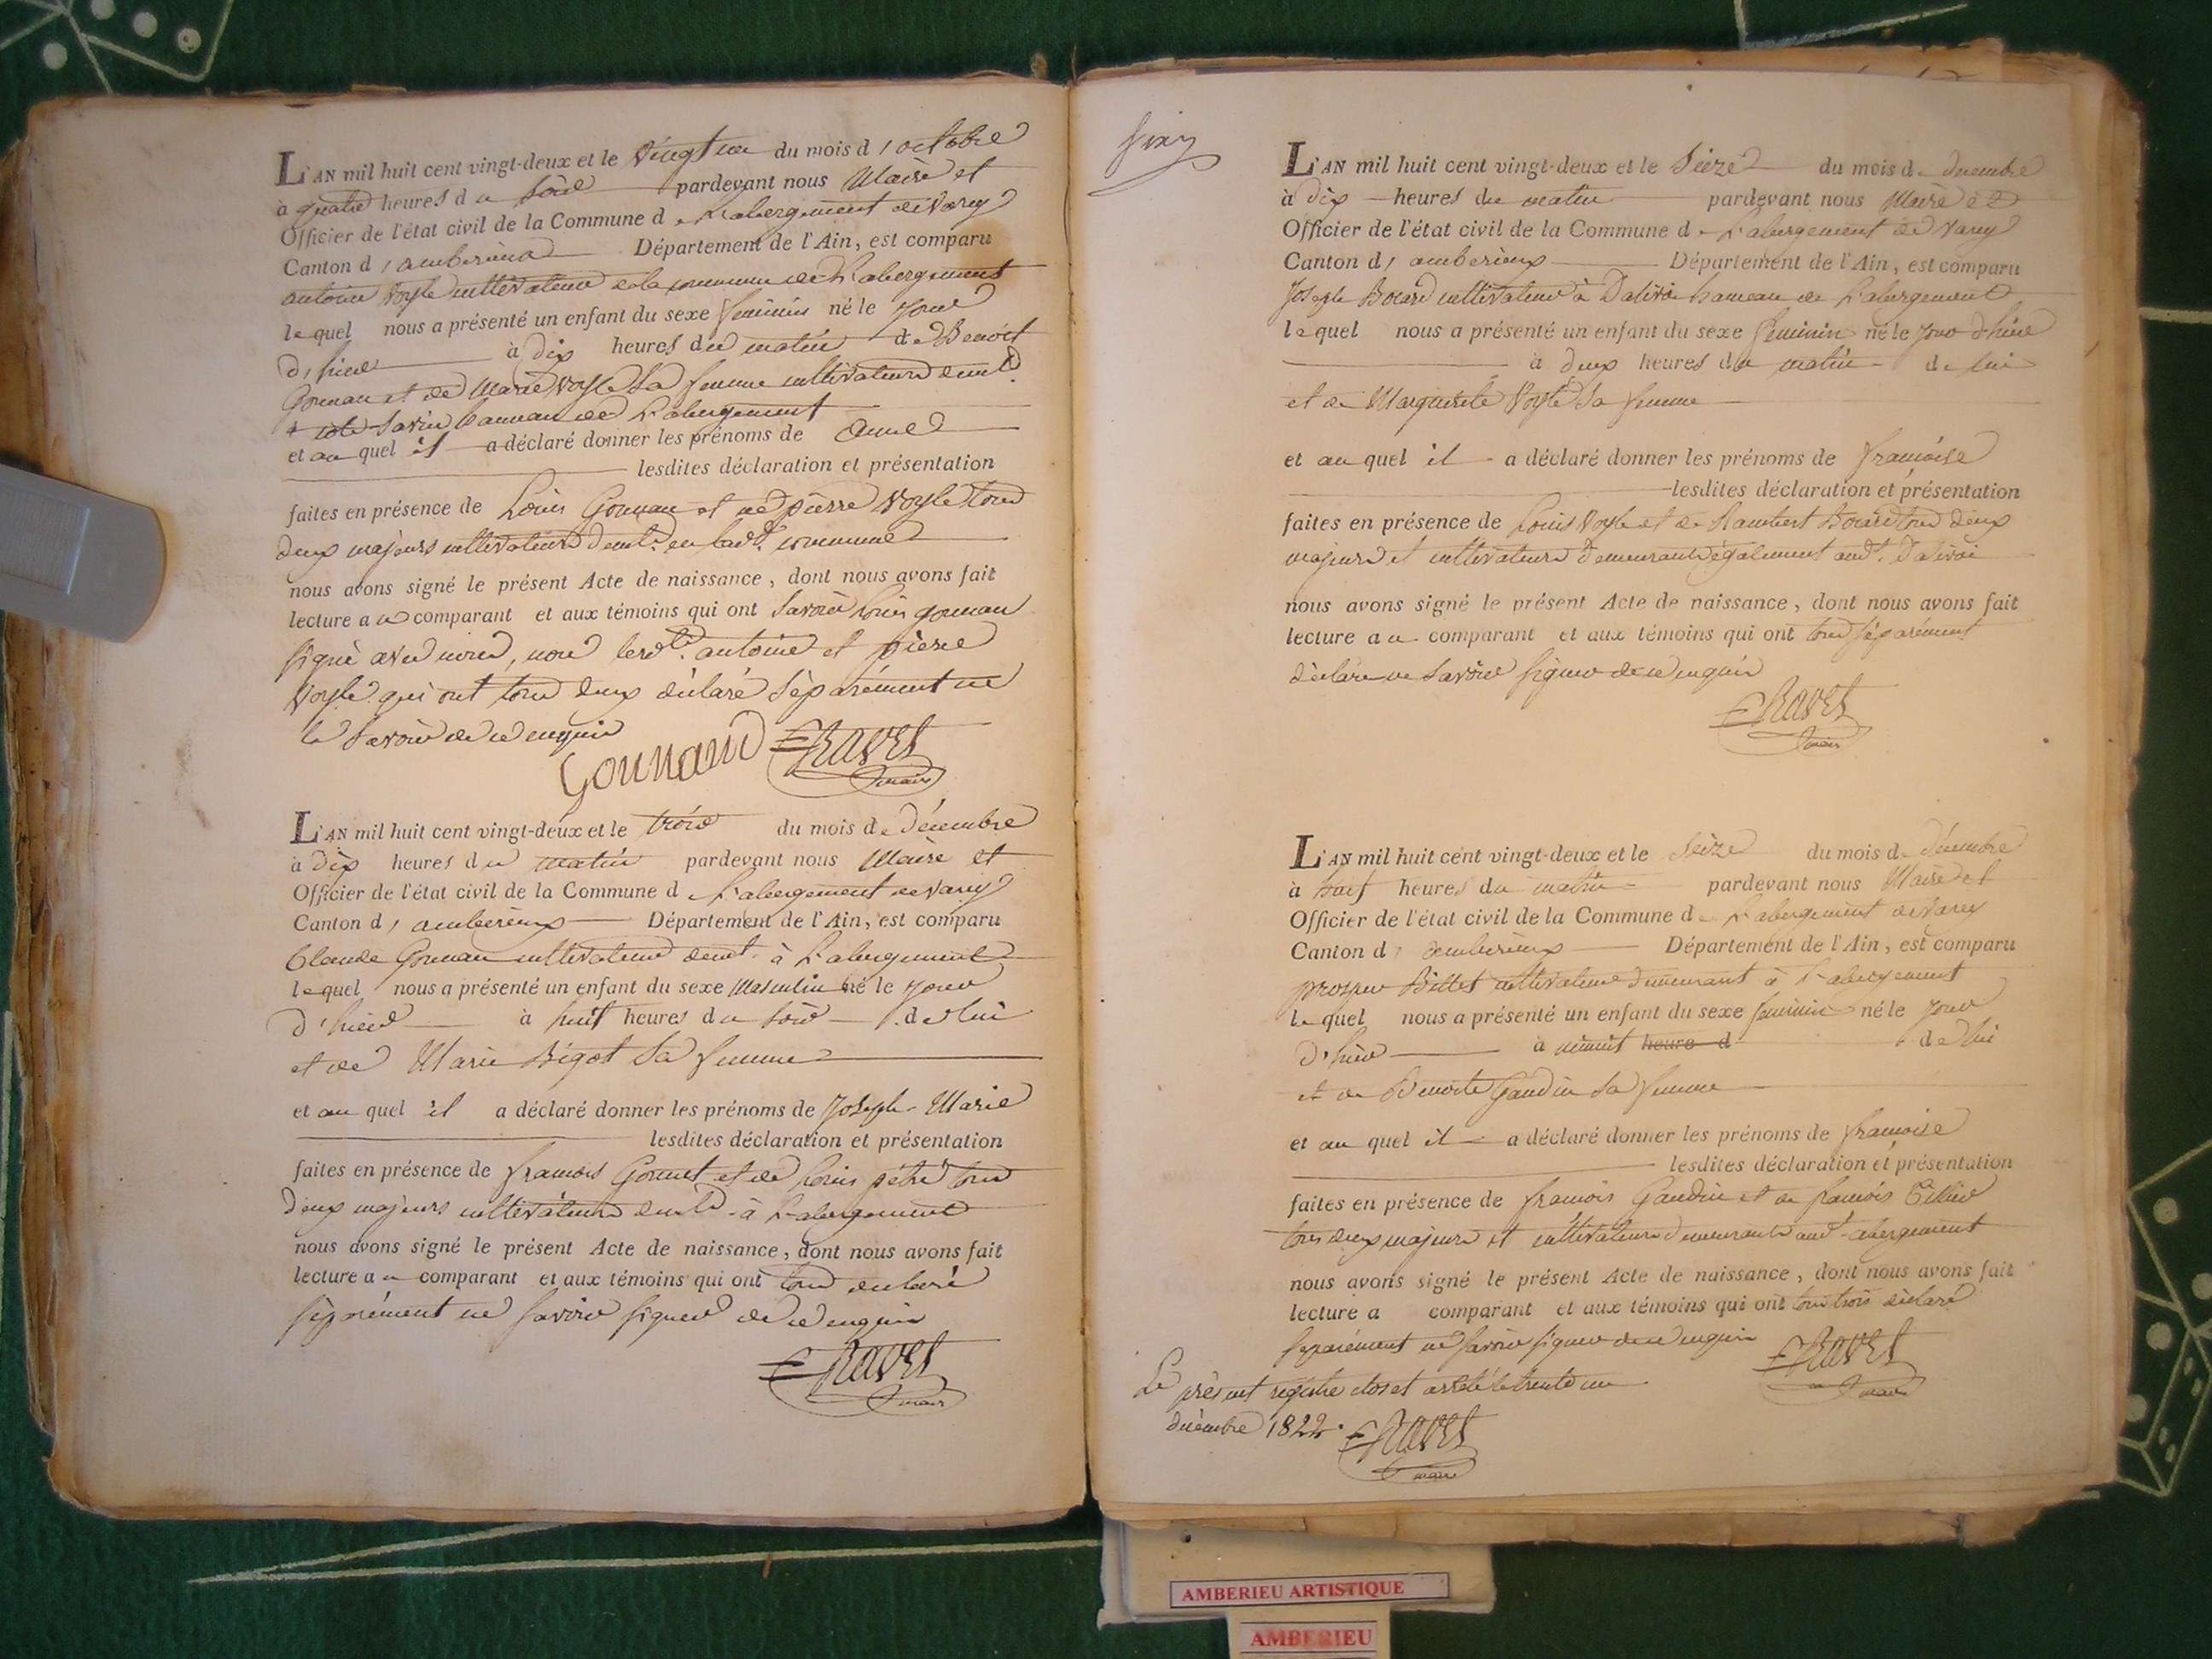 L'AN mil huit cent vingt-deux et le vingt un du mois d'octobre
à quatre heures du soir pardevant nous Maire et
Officier de l'état civil de la Commune de L'abergement de Varey
Canton d'amberieux Département de l'Ain, est comparu
antoine Voyle cultivateur de la commune de L'abergement
lequel nous a présenté un enfant du sexe feminin né le jour
d'hier à dix heures du matin de Benoit
Gounan et de Marie Voyle sa femme cultivateurs demts.
à hameau de L'abergement
et au quel il a déclaré donner les prénoms de anne
lesdites déclaration et présentation
faites en présence de Louis Gounan et de pierre Voyle tous
deux majeurs cultivateurs demts. en ladt. commune
nous avons signé le présent Acte de naissance, dont nous avons fait
lecture au comparant et aux témoins qui ont savoir Louis gounan
signé avec nous, non lesdts. antoine et pierre
Voyle qui ont tous deux déclaré séparément ne
le savoir de ce enquis
Gounand Ravet
maire
L'AN mil huit cent vingt-deux et le trois du mois de décembre
à dix heures du matin pardevant nous Maire et
Officier de l'état civil de la Commune de L'abergement de Varey
Canton d'amberieux Département de l'Ain, est comparu
Claude Gounan cultivateur demt. à L'abergement
lequel nous a présenté un enfant du sexe Masculin né le jour
d'hier à huit heures du soir de lui
et de Marie Bigot sa femme
et au quel il a déclaré donner les prénoms de Joseph-Marie
lesdites déclaration et présentation
faites en présence de francois Gounet et de Louis pétré tous
deux majeurs cultivateurs demts. à L'abergement
nous avons signé le présent Acte de naissance, dont nous avons fait
lecture au comparant et aux témoins qui ont tous déclaré
séparément ne savoir signer de ce enquis
Ravet
maire
six
L'AN mil huit cent vingt-deux et le seize du mois de decembre
à dix heures du matin pardevant nous Maire et
Officier de l'état civil de la Commune de L'abergement de Varey
Canton d'amberieux Département de l'Ain, est comparu
Joseph Bouard cultivateur à Dalivoi hameau de L'abergement
lequel nous a présenté un enfant du sexe feminin né le jour d'hier
à deux heures du matin de lui
et de Marguerite Voyle sa femme
et au quel il a déclaré donner les prénoms de francoise
lesdites déclaration et présentation
faites en présence de Louis Voyle et de Rambert Bouard tous deux
majeurs et cultivateurs demeurants également audt. Dalivoi
nous avons signé le présent Acte de naissance, dont nous avons fait
lecture au comparant et aux témoins qui ont tous séparément
déclaré ne savoir signer de ce enquis
Ravet
maire
L'AN mil huit cent vingt-deux et le seize du mois de décembre
à heures du matin pardevant nous Maire et
Officier de l'état civil de la Commune de L'abergement de Varey
Canton d'amberieux Département de l'Ain, est comparu
prosper Billet cultivateur demeurant à L'abergement
lequel nous a présenté un enfant du sexe feminin né le jour
d'hier à minuit heure d de lui
et de Benoite Gaudin sa femme
et au quel il a déclaré donner les prénoms de francoise
lesdites déclaration et présentation
faites en présence de francois Gaudin et de francois
tous deux majeurs et cultivateurs demeurants audt. abergement
nous avons signé le présent Acte de naissance, dont nous avons fait
lecture a comparant et aux témoins qui ont tous trois déclaré
séparément ne savoir signer de ce enquis
Ravet
maire
Le présent registre clos et arrêté le trente un
décembre 1822.
Ravet
maire
AMBERIEU ARTISTIQUE
AMBERIEU